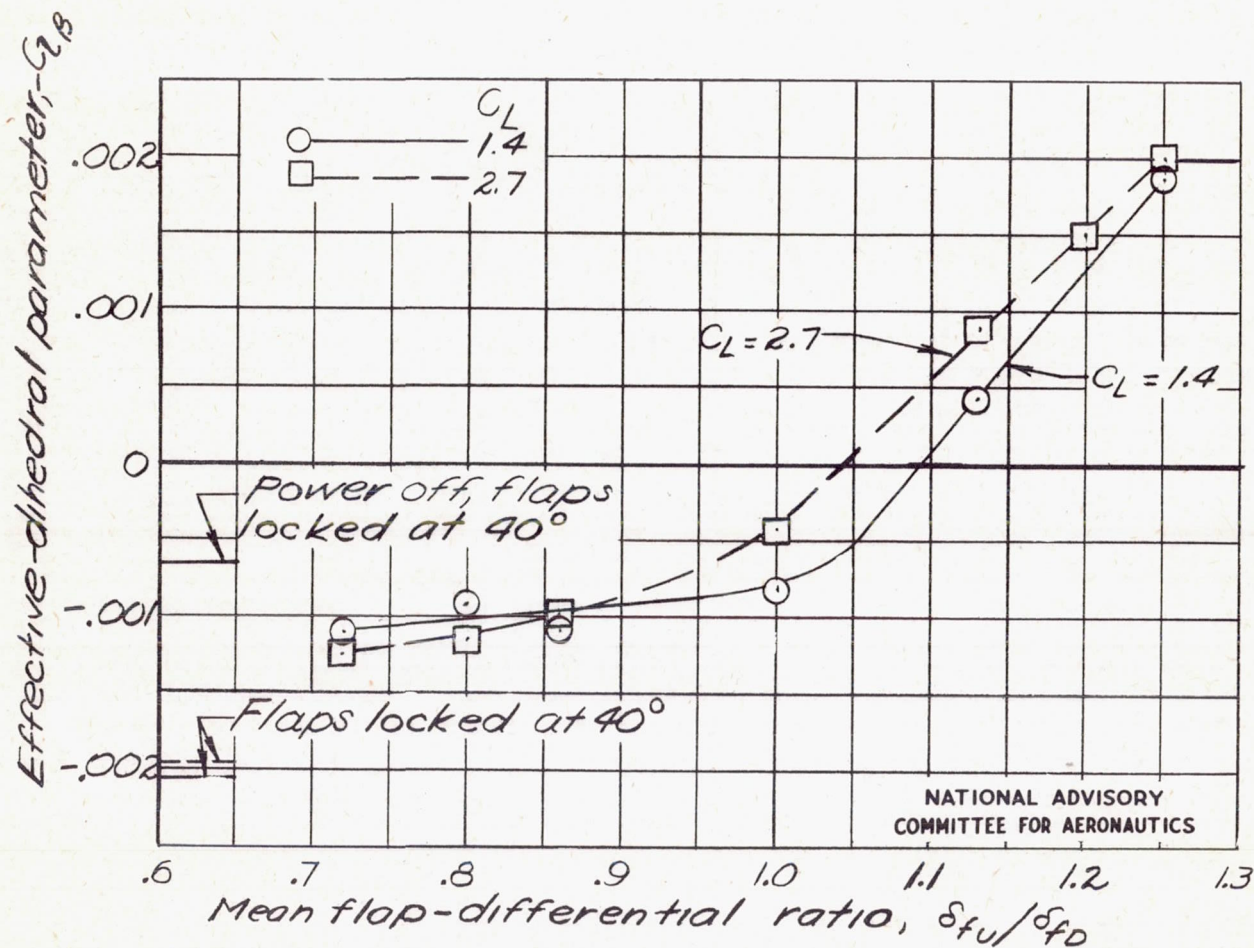 Effective-dihedral parameter, -Clβ
CL
1.4
2.7
.002
.001
0
-.001
-.002
CL = 2.7
CL = 1.4
Power off, flaps
locked at 40°
Flaps locked at 40°
NATIONAL ADVISORY
COMMITTEE FOR AERONAUTICS
.6 .7 .8 .9 1.0 1.1 1.2 1.3
Mean flap-differential ratio, δfU/δfD